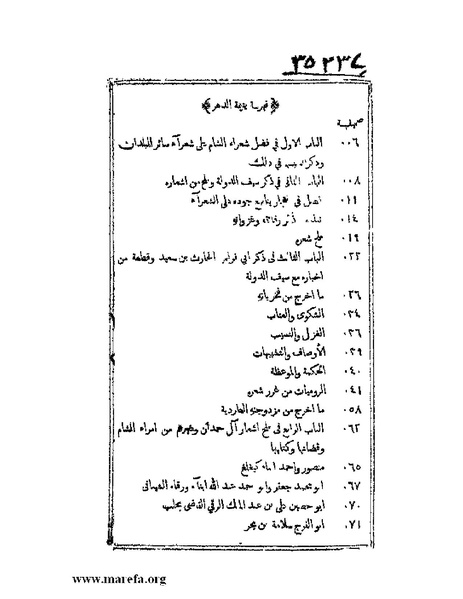 ٣٥٢٣٤
﴿ فهرسة يتيمة الدهر ﴾
صحيفة
٠٠٦ الباب الاول في فضل شعراء الشام على شعراء سائر البلدان
وذكر السبب في ذلك
٠٠٨ الباب الثاني في ذكر سيف الدولة وملح من اشعاره
٠١١ فصل في انفجار ينابيع جوده على الشعرآء
٠١٤ نبذ من ذكر وغزواته
٠١٩ ملح شعره
٠٢٢ الباب الثالث في ذكر ابي فراس الحارث بن سعيد وقطعة من
اخباره مع سيف الدولة
٠٢٦ ما اخرج من فخرياته
٠٣٤ الشكوى والعتاب
٠٣٦ الغزل والنسيب
٠٣٩ الأوصاف والتشبيهات
٠٤٠ الحكمة والموعظة
٠٤١ الروميات من غرر شعره
٠٥٨ ما اخرج من مزدوجته الطاردية
٠٦٢ الباب الرابع في ملح اشعار آل حمدان وغيرهم من امراء الشام
وقضاتها وكتابها
٠٦٥ منصور واحمد ابنا كيغلغ
٠٦٧ ابو محمد جعفر وابو احمد عبد الله ابنآء ورقاء الشيباني
٠٧٠ ابو حصين علي بن عبد الملك الرقي القاضي بحلب
٠٧١ ابو الفرج سلامة بن بحر
www.marefa.org